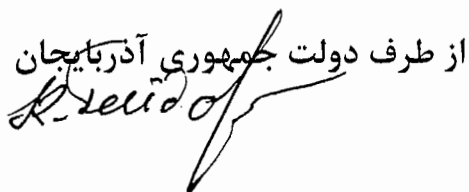 از طرف دولت جمهوری آذربایجان